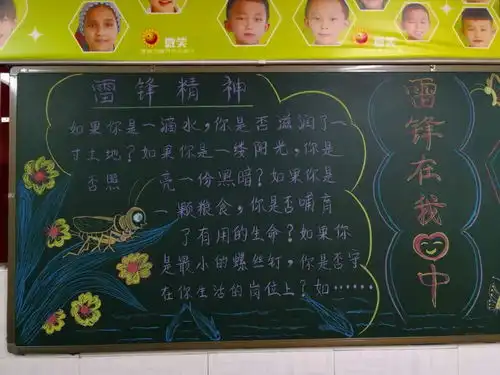 微笑
微笑
雷锋精神
如果你是一滴水,你是否滋润了一
寸土地?如果你是一缕阳光,你是
否 亮一份黑暗?如果你是
一颗粮食,你是否哺育
了有用的生命?如果你
是最小的螺丝钉,你是否守
在你生活的岗位上?如……
雷锋在我中